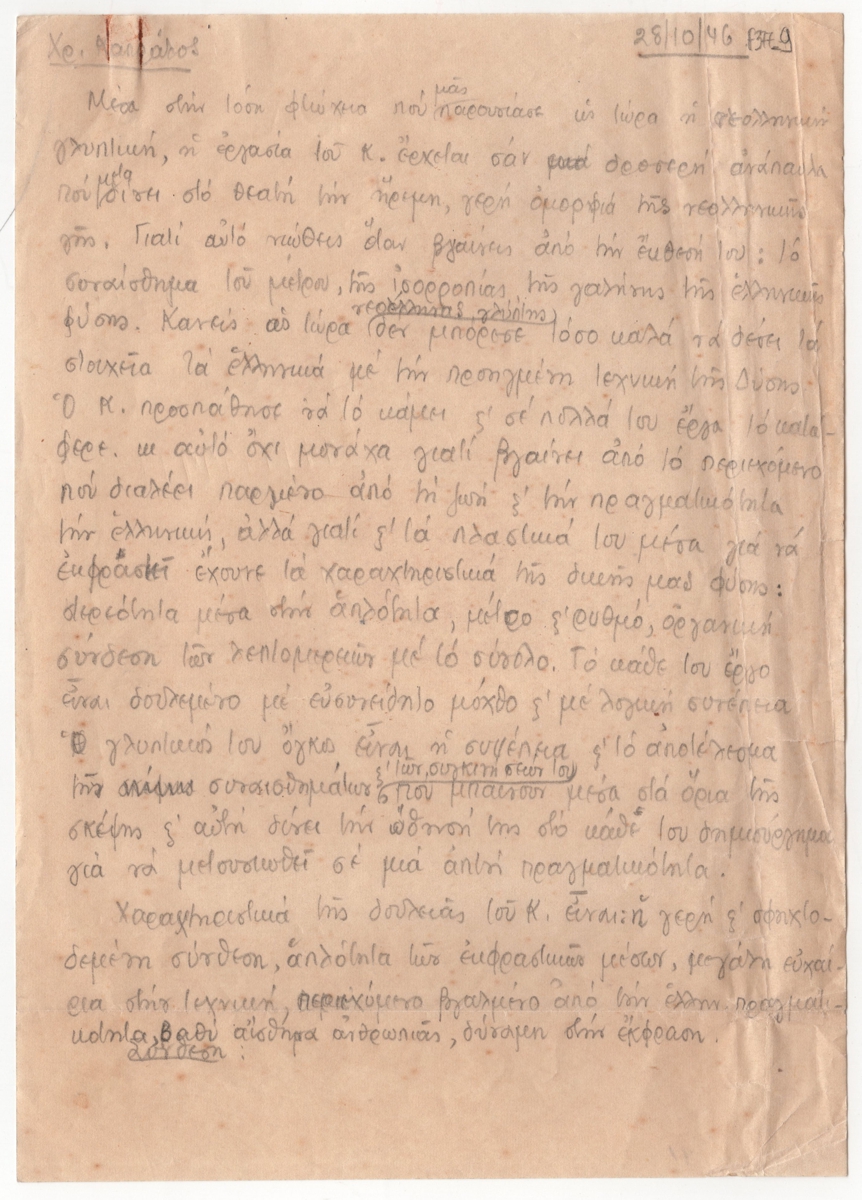 Χρ. Καπράλος
28/10/46
Μέσα στήν τόση φτώχεια πού μᾶς παρουσίασε ὡς τώρα ἡ νεοελληνική
γλυπτική, ἡ ἐργασία τοῦ Κ. ἔρχεται σάν μιά δροσερή ἀνάπαυλα
πού μέσα δίνει στό θεατή τήν ἤρεμη, γερή ὀμορφιά τῆς νεοελληνικῆς
γῆς. Γιατί αὐτό νιώθεις ὅταν βγαίνεις ἀπό τήν ἔκθεσή του: τό
συναίσθημα τοῦ μέτρου, τῆς ἰσορροπίας τῆς γαλήνης τῆς ἑλληνικῆς
φύσης. Κανείς ὡς τώρα νεοέλληνας γλύπτης δέν μπόρεσε τόσο καλά νά δέσει τά
στοιχεῖα τά ἑλληνικά μέ τήν προηγμένη τεχνική τῆς Δύσης.
Ὁ Κ. προσπάθησε νά τό κάμει ϗ' σέ πολλά του ἔργα τό κατά-
φερε. κι αὐτό ὄχι μονάχα γιατί βγαίνει ἀπό τό περιεχόμενο
πού διαλέει παρμένο ἀπό τή ζωή ϗ' τήν πραγματικότητα
τήν ἑλληνική, ἀλλά γιατί ϗ' τά πλαστικά του μέσα γιά νά
ἐκφραστεῖ ἔχουνε τά χαραχτηριστικά τῆς δικῆς μας φύσης:
στερεότητα μέσα στήν ἁπλότητα, μέτρο ϗ' ρυθμό, ὀργανική
σύνδεση τῶν λεπτομερειῶν μέ τό σύνολο. Τό κάθε του ἔργο
εἶναι δουλεμένο μέ εὐσυνείδητο μόχθο ϗ' μέ λογική συνέπεια
Ὁ γλυπτικός του ὄγκος εἶναι ἡ συνέπεια ϗ' τό ἀποτέλεσμα
τῆς σκέψης συναισθημάτων ϗ' τῶν συγκινήσεών του πού μπαίνουν μέσα στά ὅρια τῆς
σκέψης ϗ' αὐτή δίνει τήν ὤθησή της στό κάθε του δημιούργημα
γιά νά μετουσιωθεῖ σέ μιά ἁπτή πραγματικότητα.
Χαραχτηριστικά τῆς δουλειᾶς τοῦ Κ. εἶναι: ἡ γερή ϗ' σφιχτο-
δεμένη σύνθεση, ἁπλότητα τῶν ἐκφραστικῶν μέσων, μεγάλη εὐχέ-
ρια στήν τεχνική, περιεχόμενο βγαλμένο ἀπό τήν ἑλλην. πραγματι-
κότητα, βαθύ αἴσθημα ἀνθρωπιᾶς, δύναμη στήν ἔκφραση.
Σύνθεση: